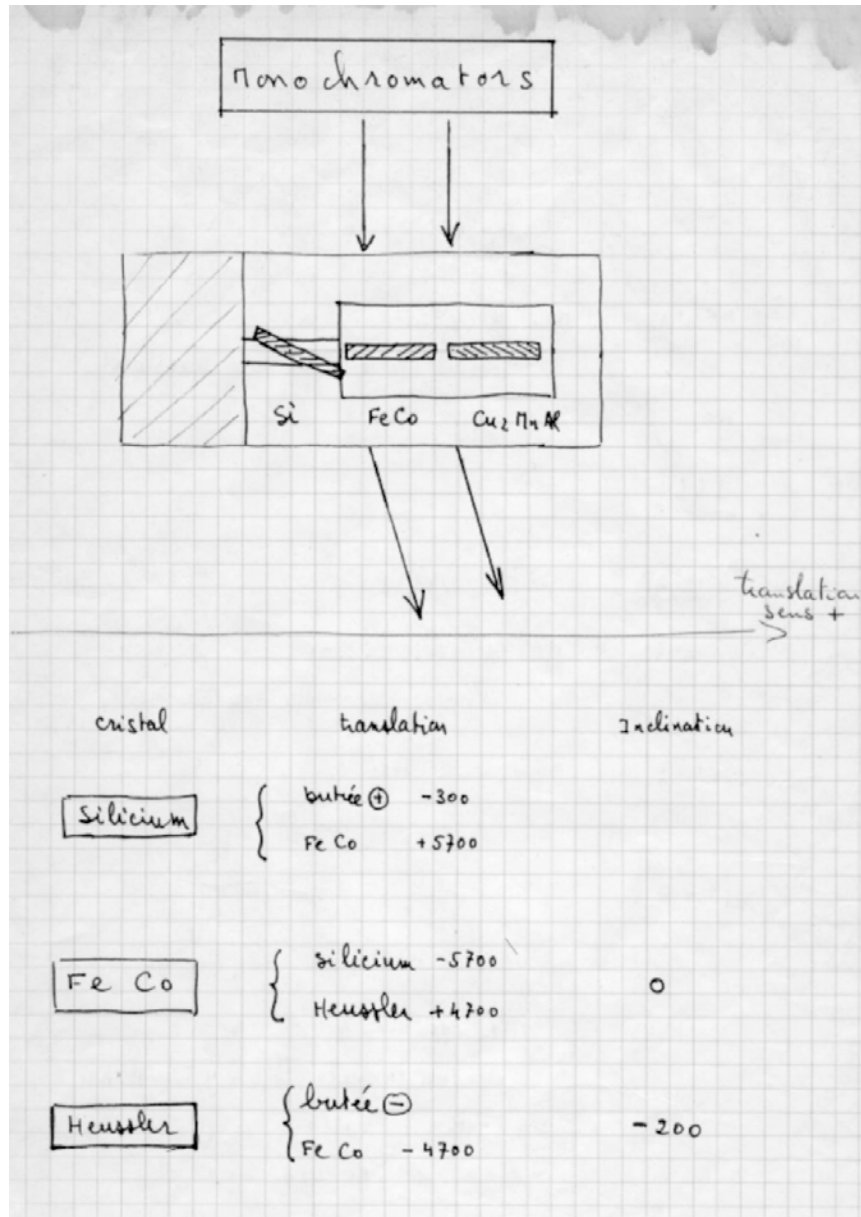 Monochromators
Si FeCo Cu2MnAl
translation
sens +
cristal translation Inclination
Silicium
butée ⊕ -300
FeCo +5700
FeCo
silicium -5700
Heussler +4700
0
Heussler
butée ⊖
FeCo -4700
-200